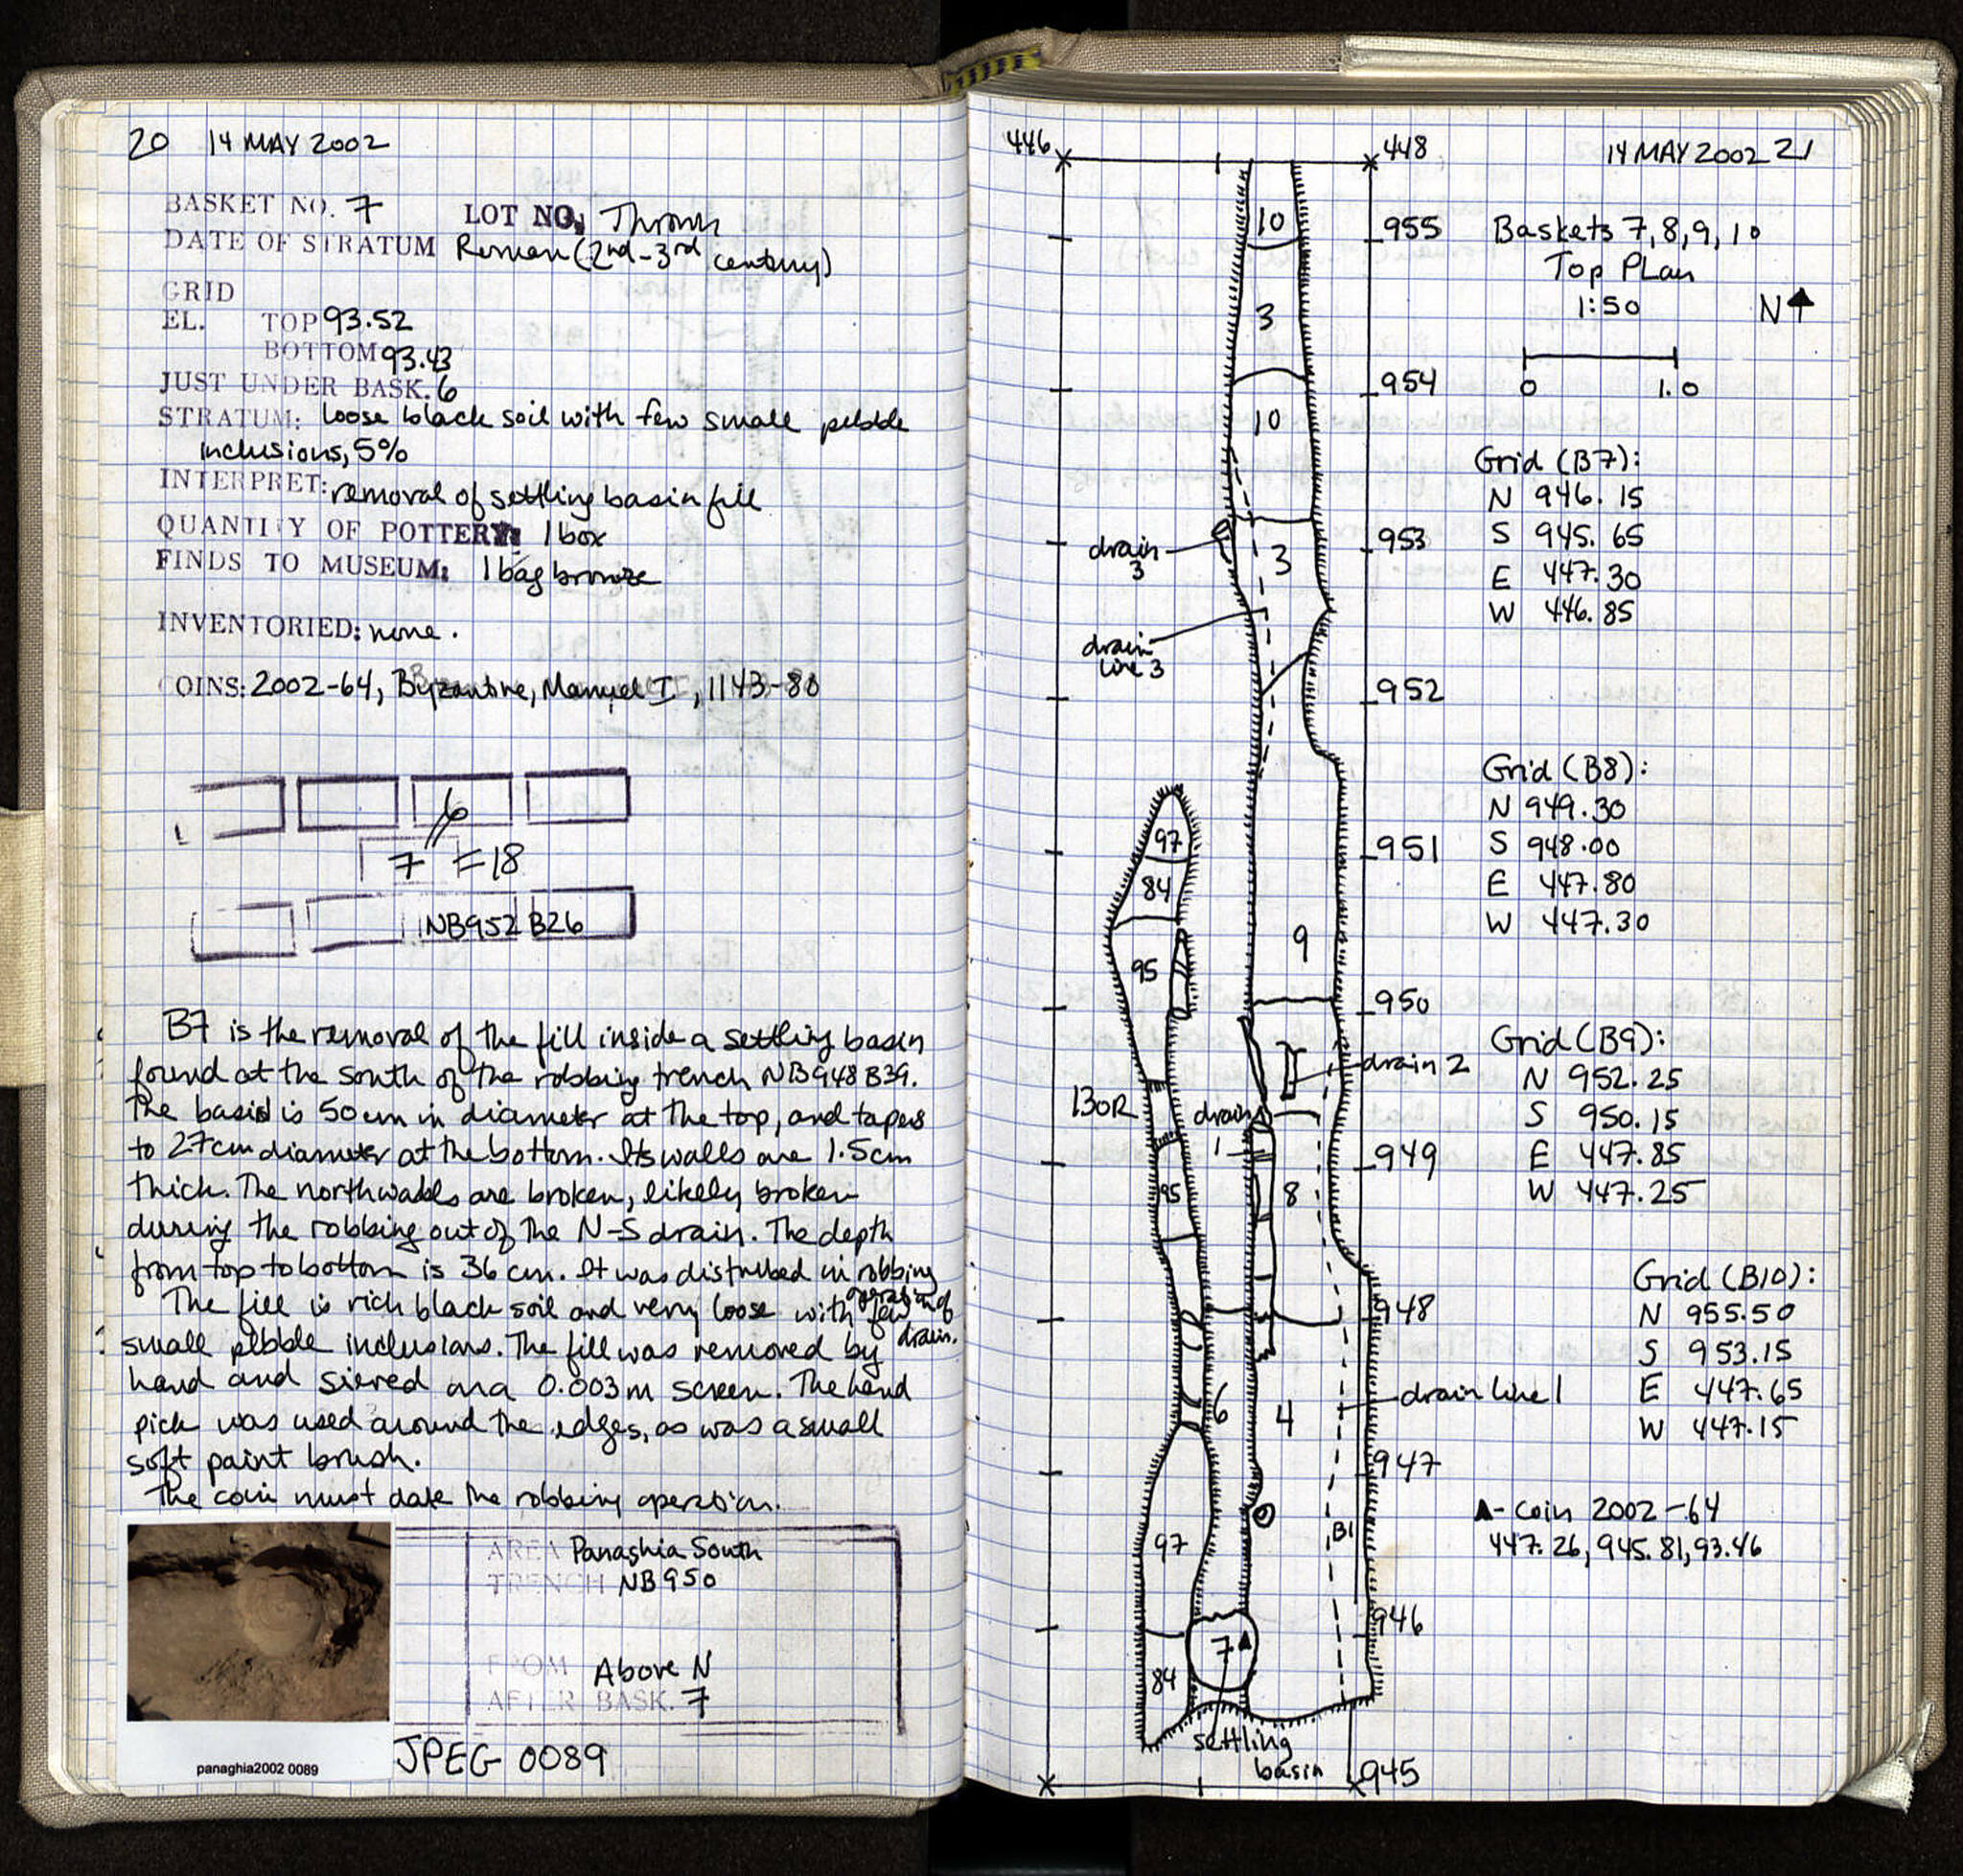 20 14 MAY 2002
BASKET NO. 7 LOT NO. Thrown
DATE OF STRATUM Roman (2nd-3rd century)
GRID
EL. TOP 93.52
BOTTOM 93.43
JUST UNDER BASK. 6
STRATUM: loose black soil with few small pebble
inclusions, 5%
INTERPRET: removal of settling basin fill
QUANTITY OF POTTERY: 1 box
FINDS TO MUSEUM: 1 bag bronze
INVENTORIED: none.
COINS: 2002-64, Byzantine, Manuel I, 1143-80
6
7 = 18
NB952 B26
B7 is the removal of the fill inside a settling basin
found at the south of the robbing trench NB948 B39.
The basin is 50cm in diameter at the top, and tapers
to 27cm diameter at the bottom. Its walls are 1.5cm
thick. The north walls are broken, likely broken
during the robbing out of the N-S drain. The depth
from top to bottom is 36 cm. It was disturbed in robbing
operation of
drain.
The fill is rich black soil and very loose with few
small pebble inclusions. The fill was removed by
hand and sieved in a 0.003m screen. The hand
pick was used around the edges, as was a small
soft paint brush.
The coin must date the robbing operation.
AREA Panaghia South
TRENCH NB950
FROM Above N
AFTER BASK. 7
panaghia2002 0089
JPEG 0089
14 MAY 2002 21
446
448
10
955
Baskets 7, 8, 9, 10
Top Plan
1:50
N
3
954
0 1.0
10
Grid (B7):
N 946.15
S 945.65
E 447.30
W 446.85
drain
3
3
953
drain
line 3
952
Grid (B8):
N 949.30
S 948.00
E 447.80
W 447.30
97
951
84
95
9
950
Grid (B9):
N 952.25
S 950.15
E 447.85
W 447.25
drain 2
130R
drain
1
949
95
8
Grid (B10):
N 955.50
S 953.15
E 447.65
W 447.15
948
drain line 1
6
4
947
▲- coin 2002-64
447.26, 945.81, 93.46
97
B1
946
7
84
settling
basin
945